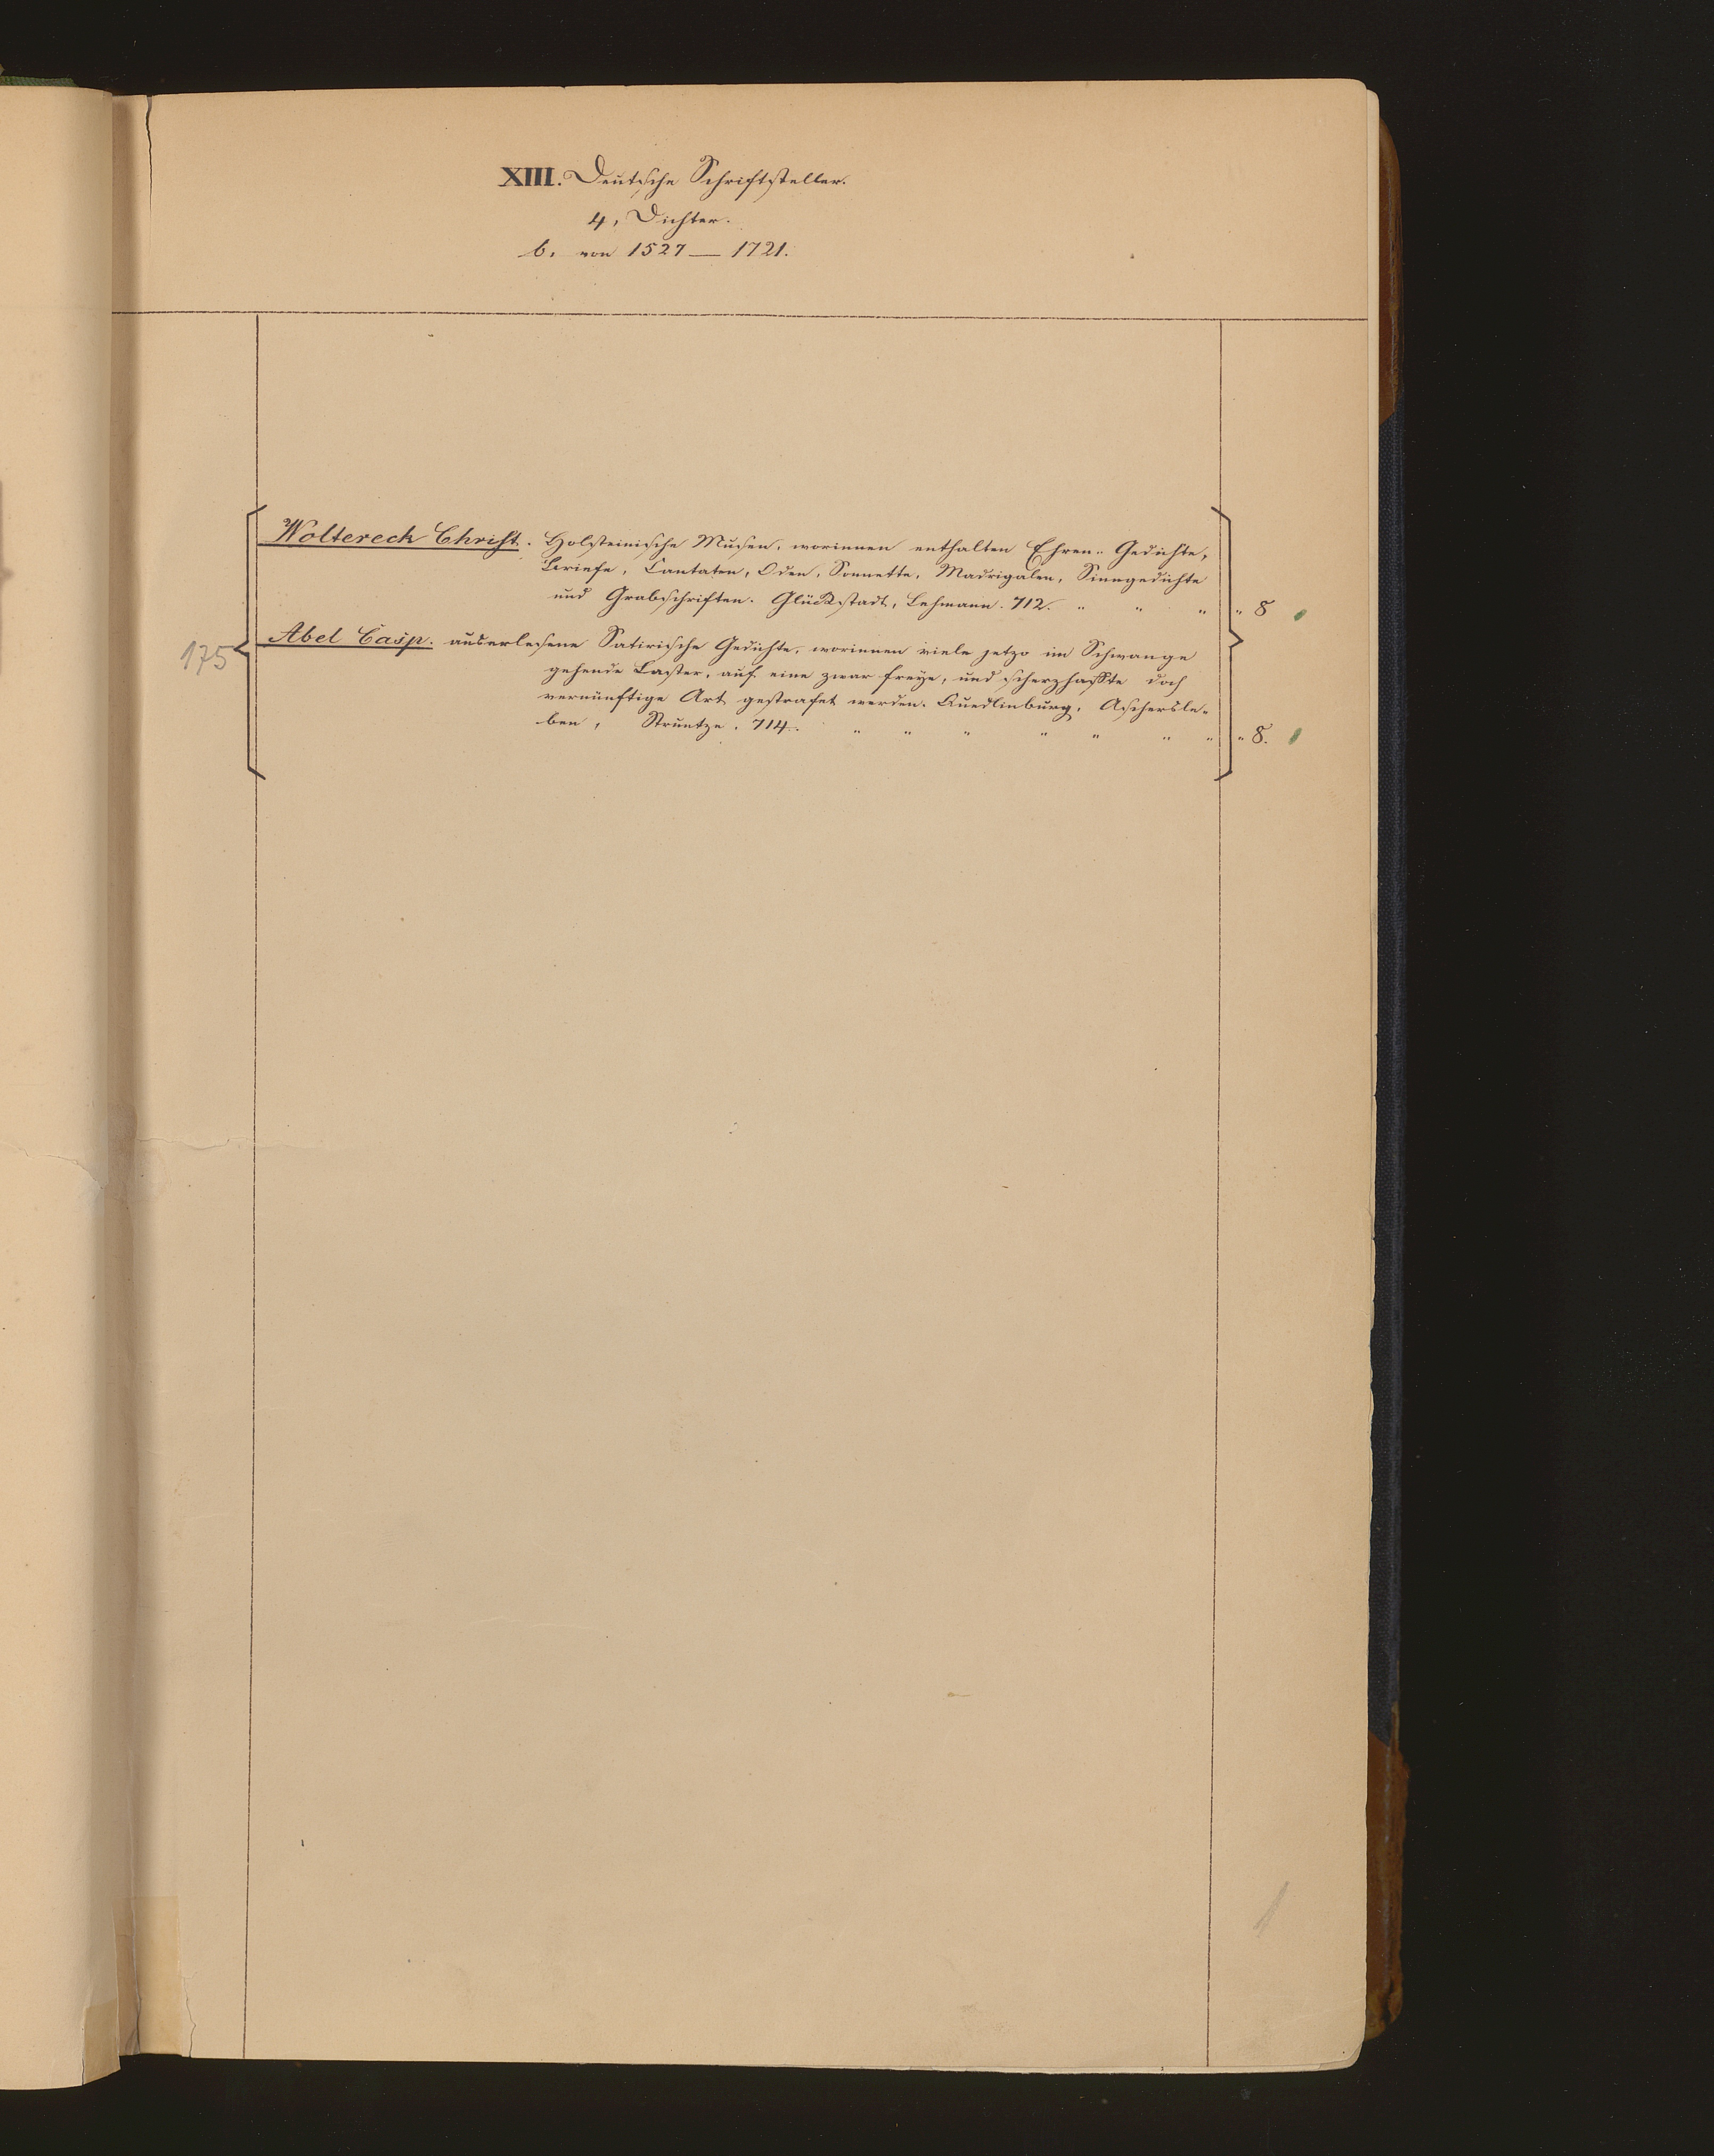 XIII. Deutsche Schriftsteller.
4, Dichter.
b. von 1527 — 1721.
Woltereck Christ. Holsteinische Musen, worinnen enthalten Ehren-Gedichte,
Briefe, Cantaten, Oden, Sonnette, Madrigalen, Sinngedichte
und Grabschriften. Glückstadt, Lehmann. 712. " " " " 8
175
Abel Casp. auserlesene Satirische Gedichte, worinnen viele jetzo im Schwange
gehende Laster, auf eine zwar freye, und scherzhaffte doch
vernünftige Art gestrafet werden. Quedlinburg, Aschersle-
ben, Struntze. 714. " " " " " " " " 8.
1